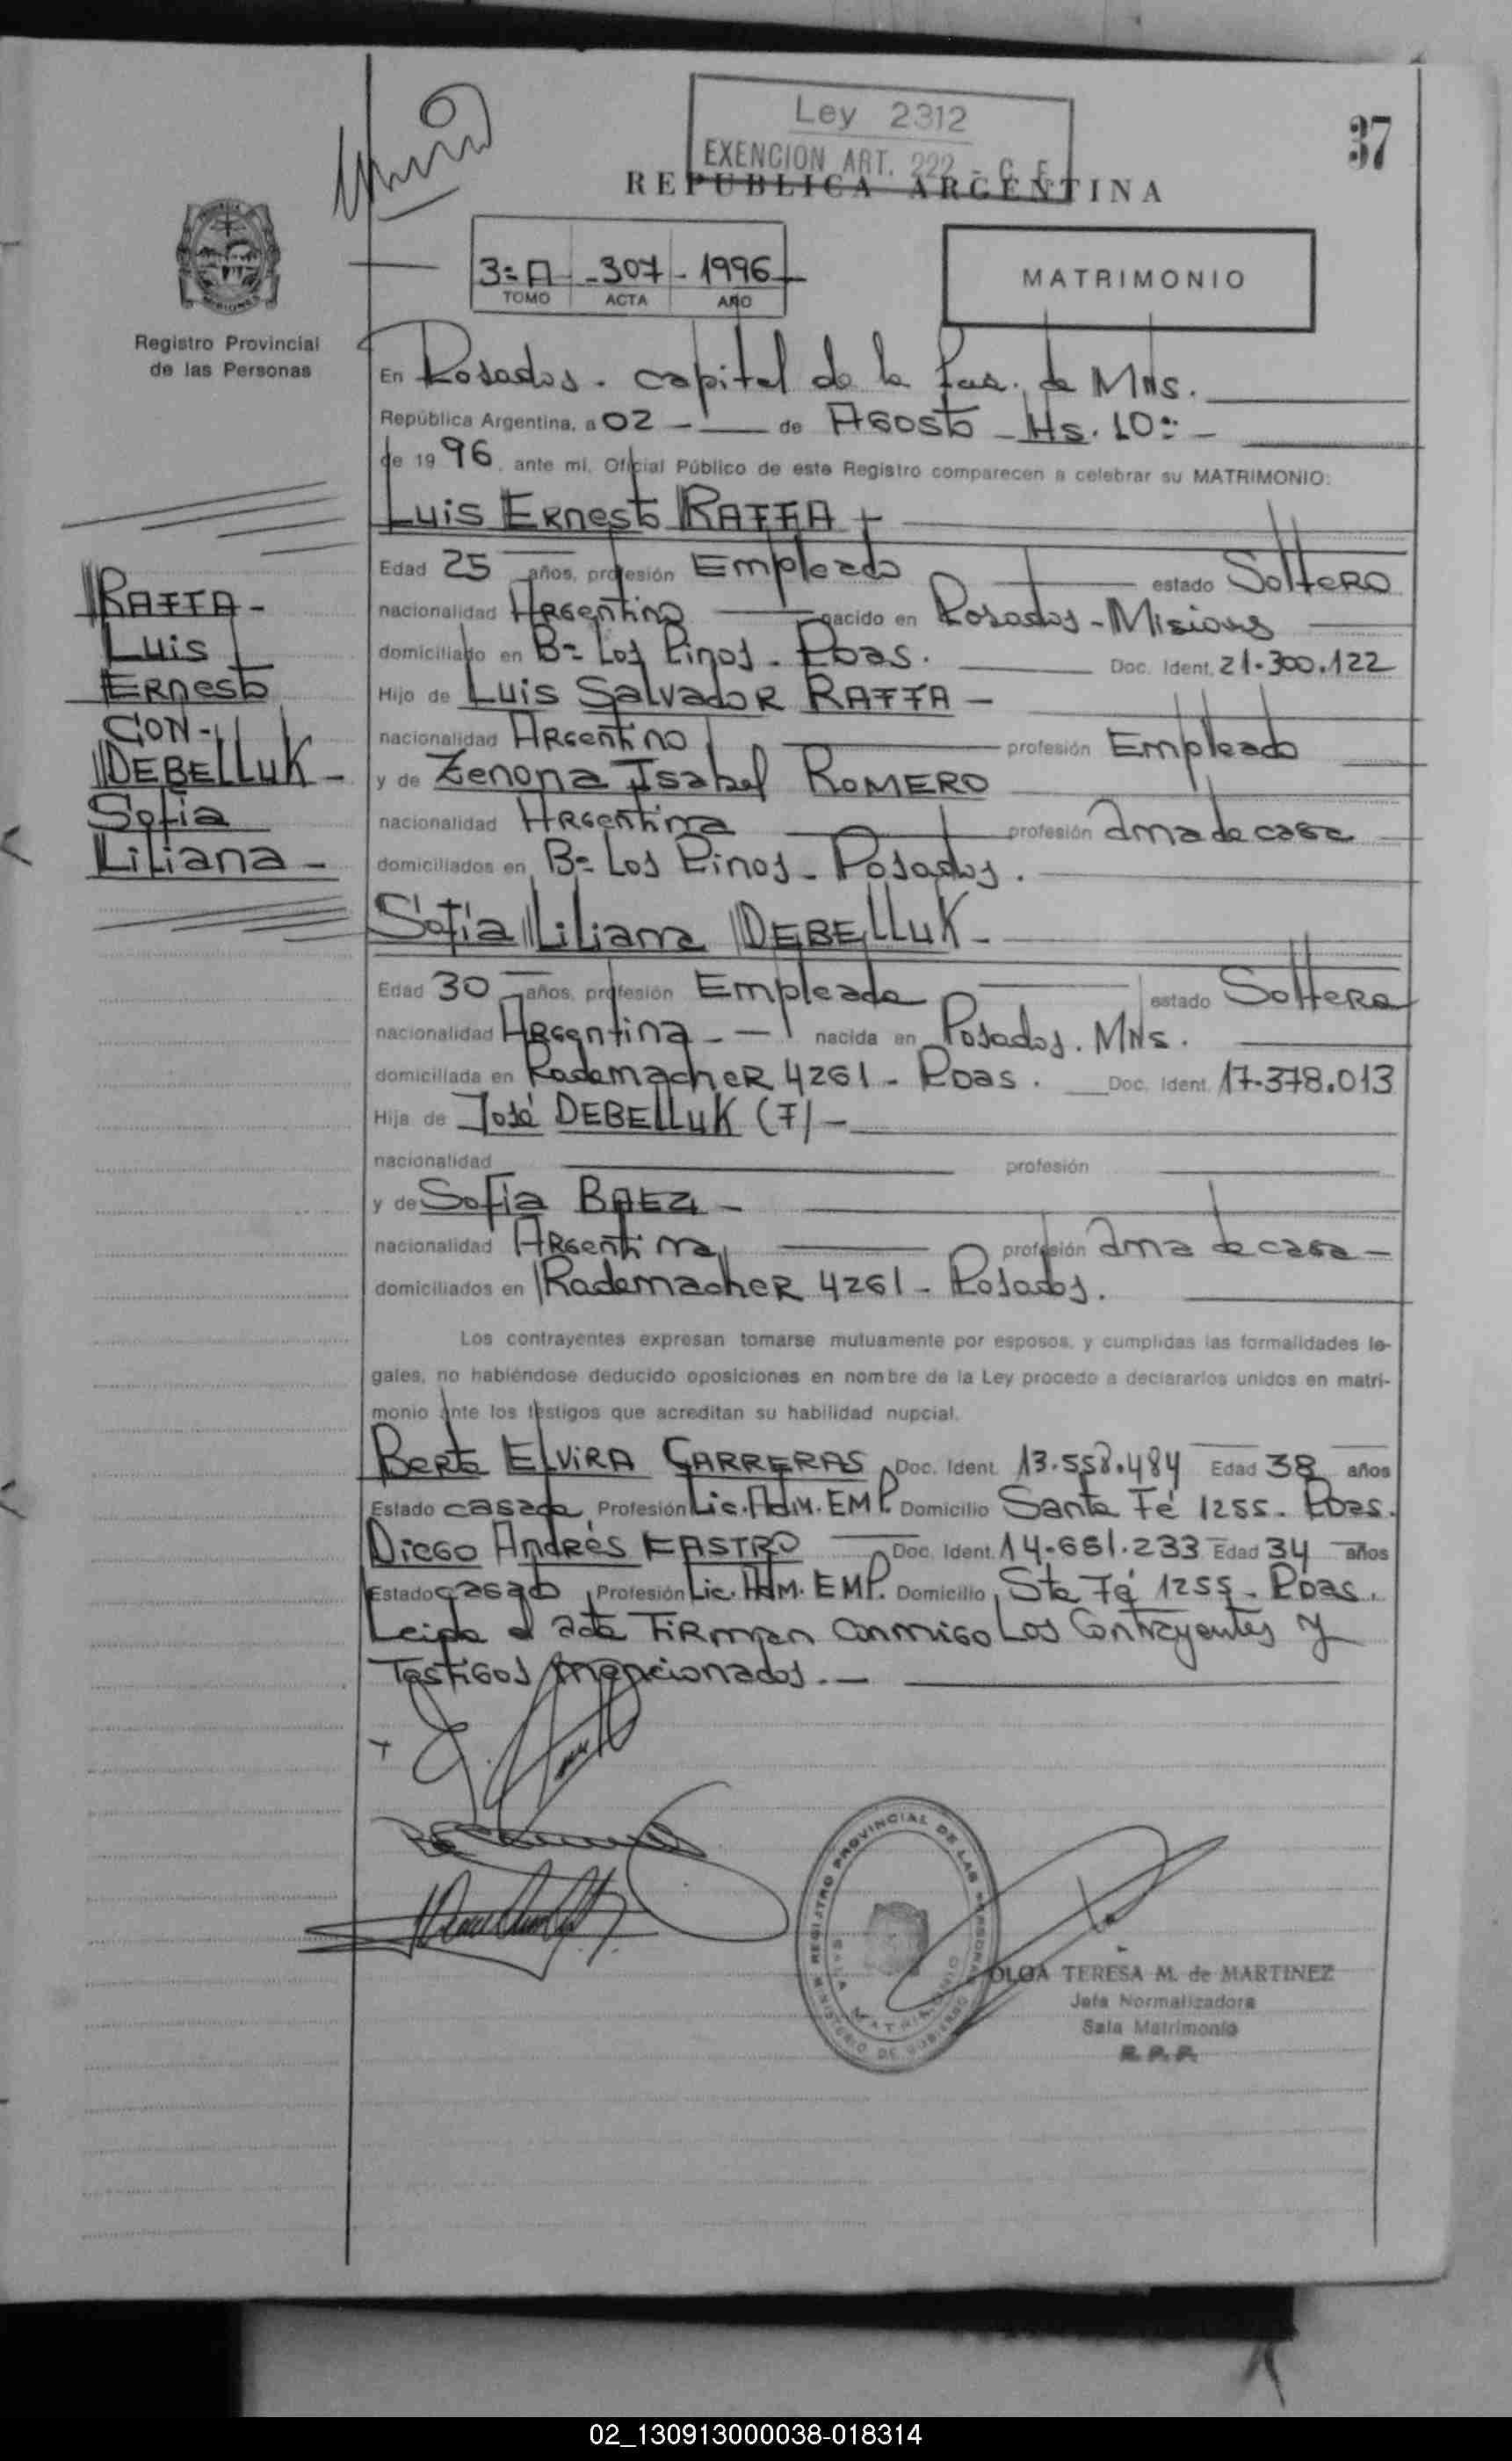 Ley 2312
EXENCION ART. 222 - C. F.
37
REPUBLICA ARGENTINA
3= A - 307 - 1996
TOMO ACTA AÑO
MATRIMONIO
Registro Provincial
de las Personas
En Posadas. capital de la Pcia. de Mns.
República Argentina, a 02 - de Agosto - Hs. 10:-
de 1996, ante mí, Oficial Público de este Registro comparecen a celebrar su MATRIMONIO:
Luis Ernesto RAFFA
Edad 25 años, profesión Empleado estado Soltero
nacionalidad Argentino nacido en Posadas - Misiones
domiciliado en Bº Los Pinos - Pdas. Doc. Ident. 21.300.122
Hijo de Luis Salvador RAFFA -
nacionalidad Argentino profesión Empleado
y de Zenona Isabel ROMERO
nacionalidad Argentina profesión ama de casa
domiciliados en Bº Los Pinos - Posadas.
RAFFA -
Luis
Ernesto
CON -
DEBELLUK -
Sofia
Liliana -
Sofía Liliana DEBELLUK -
Edad 30 años, profesión Empleada estado Soltera
nacionalidad Argentina - nacida en Posadas. Mns.
domiciliada en Rademacher 4261 - Pdas. Doc. Ident. 17.378.013
Hija de José DEBELLUK (F) -
nacionalidad profesión
y de Sofía BAEZ -
nacionalidad Argentina profesión ama de casa -
domiciliados en Rademacher 4261 - Posadas.
Los contrayentes expresan tomarse mutuamente por esposos, y cumplidas las formalidades le-
gales, no habiéndose deducido oposiciones en nombre de la Ley procedo a declararlos unidos en matri-
monio ante los testigos que acreditan su habilidad nupcial.
Berta ELVIRA CARRERAS Doc. Ident. 13.558.484 Edad 38 años
Estado casada Profesión Lic. Adm. EMP. Domicilio Santa Fé 1255 - Pdas.
Diego Andrés FASTRO Doc. Ident. 14.651.233 Edad 34 años
Estado casado Profesión Lic. Adm. EMP. Domicilio Sta Fé 1255 - Pdas.
Leida el acta Firman conmigo Los Contrayentes y
Testigos mencionados. -
REGISTRO PROVINCIAL DE LAS PERSONAS
SALA MATRIMONIO
MINISTERIO DE GOBIERNO
OLGA TERESA M. de MARTINEZ
Jefa Normalizadora
Sala Matrimonio
R.P.P.
02_130913000038-018314